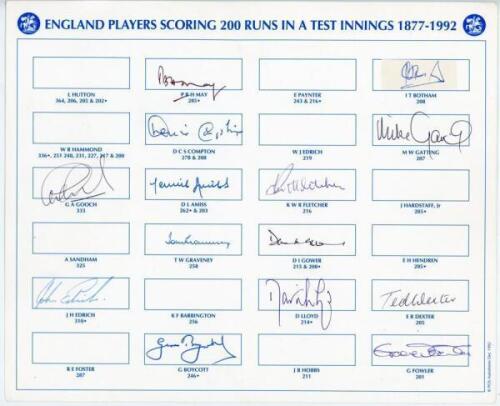 ENGLAND PLAYERS SCORING 200 RUNS IN A TEST INNINGS 1877-1992
L HUTTON
364, 206, 205 & 202*
P B H MAY
285*
E PAYNTER
243 & 216*
I T BOTHAM
208
Denis Compton
Mike Gatting
W R HAMMOND
336*, 251 240, 231, 227, 217 & 200
D C S COMPTON
278 & 208
W J EDRICH
219
M W GATTING
207
Dennis Amiss
G A GOOCH
333
D L AMISS
262* & 203
K W R FLETCHER
216
J HARDSTAFF, Jr
205*
Tom Graveney
A SANDHAM
325
T W GRAVENEY
258
D I GOWER
215 & 200*
E H HENDREN
205*
John Edrich
David Lloyd
Ted Dexter
J H EDRICH
310*
K F BARRINGTON
256
D LLOYD
214*
E R DEXTER
205
R E FOSTER
287
G BOYCOTT
246*
J B HOBBS
211
G FOWLER
201